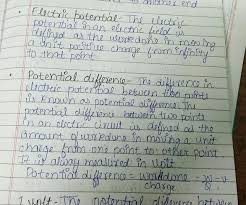 to another end
• Electric potential - The electric
potential in an electric field is
defined as the workdone in moving
a unit positive charge from infinity
to that point
• Potential difference - The difference in
electric potential between two points
is known as potential difference. The
potential difference between two points
in an electric circuit is defined as the
amount of workdone in moving a unit
charge from one point to other point
It is always measured in volt.
Potential difference = workdone = W = V
charge Q
1 volt - The potential difference between